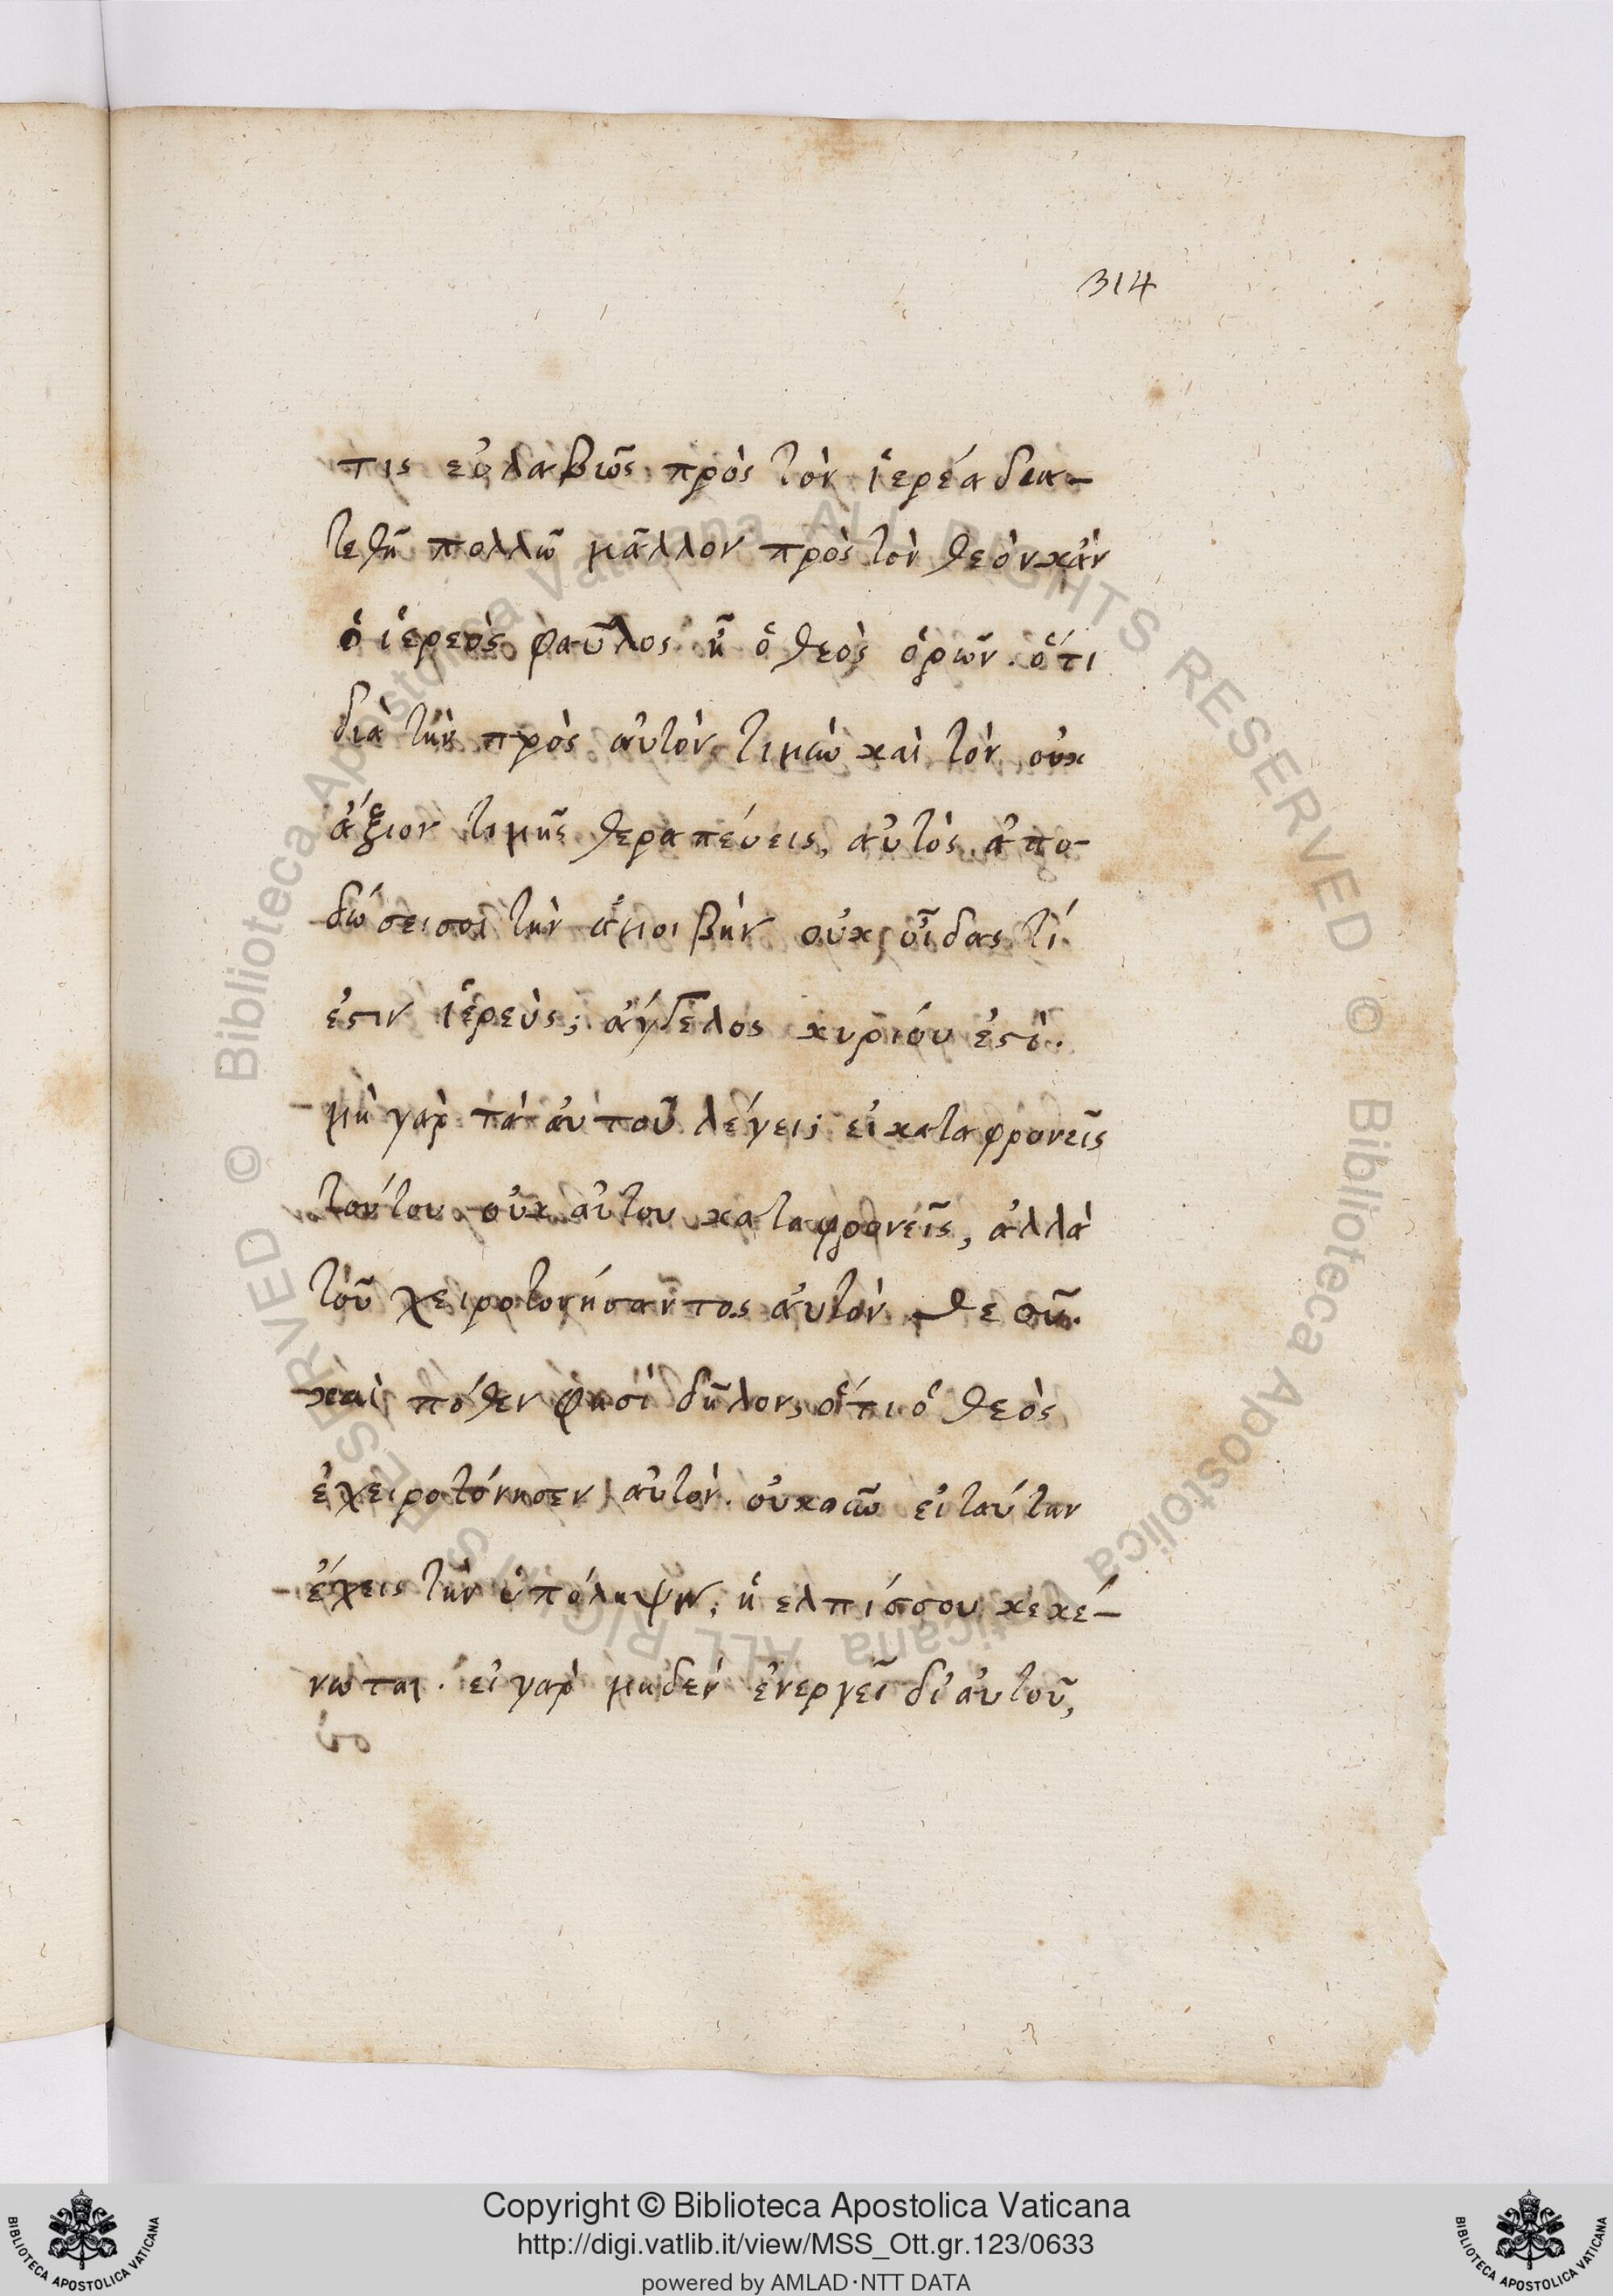 314
τις εὐλαβῶς πρὸς τὸν ἱερέα δια-
τεθῆ πολλῶ μᾶλλον πρὸς τὸν θεὸν κἂν
ὁ ἱερεὸς φαῦλος ἦ ὁ θεὸς ὁρῶν ὅτι
διὰ τὴν πρὸς αὐτὸν τιμὼ καὶ τὸν οὐκ
ἄξιον τιμῆς θεραπεύεις, αὐτὸς ἀπο-
δώσει σοι τὴν ἀμοιβὴν οὐκ οἶδας τί
ἐστιν ἱερεὺς; ἄγγελος κυρίου ἐστὶ.
μὴ γὰρ τὰ αὐτοῦ λέγει; εἰ καταφρονεῖς
τούτου οὐκ αὐτου καταφρονεῖς, ἀλλὰ
τοῦ χειροτονήσαντος αὐτὸν θεοῦ.
καὶ πόθεν φησὶ δῆλον, ὅτι ὁ θεὸς
ἐχειροτόνησεν αὐτὸν. οὐκοῦν εἰ ταύτην
ἔχεις τὴν ὑπόληψιν, ἡ ελπίς σου κεκέ-
νωται. εἰ γὰρ μηδὲν ἐνεργεῖ δι' αὐτοῦ,
Copyright © Biblioteca Apostolica Vaticana
http://digi.vatlib.it/view/MSS_Ott.gr.123/0633
powered by AMLAD·NTT DATA
BIBLIOTECA APOSTOLICA VATICANA
BIBLIOTECA APOSTOLICA VATICANA
© Biblioteca Apostolica Vaticana ALL RIGHTS RESERVED
© Biblioteca Apostolica Vaticana ALL RIGHTS RESERVED